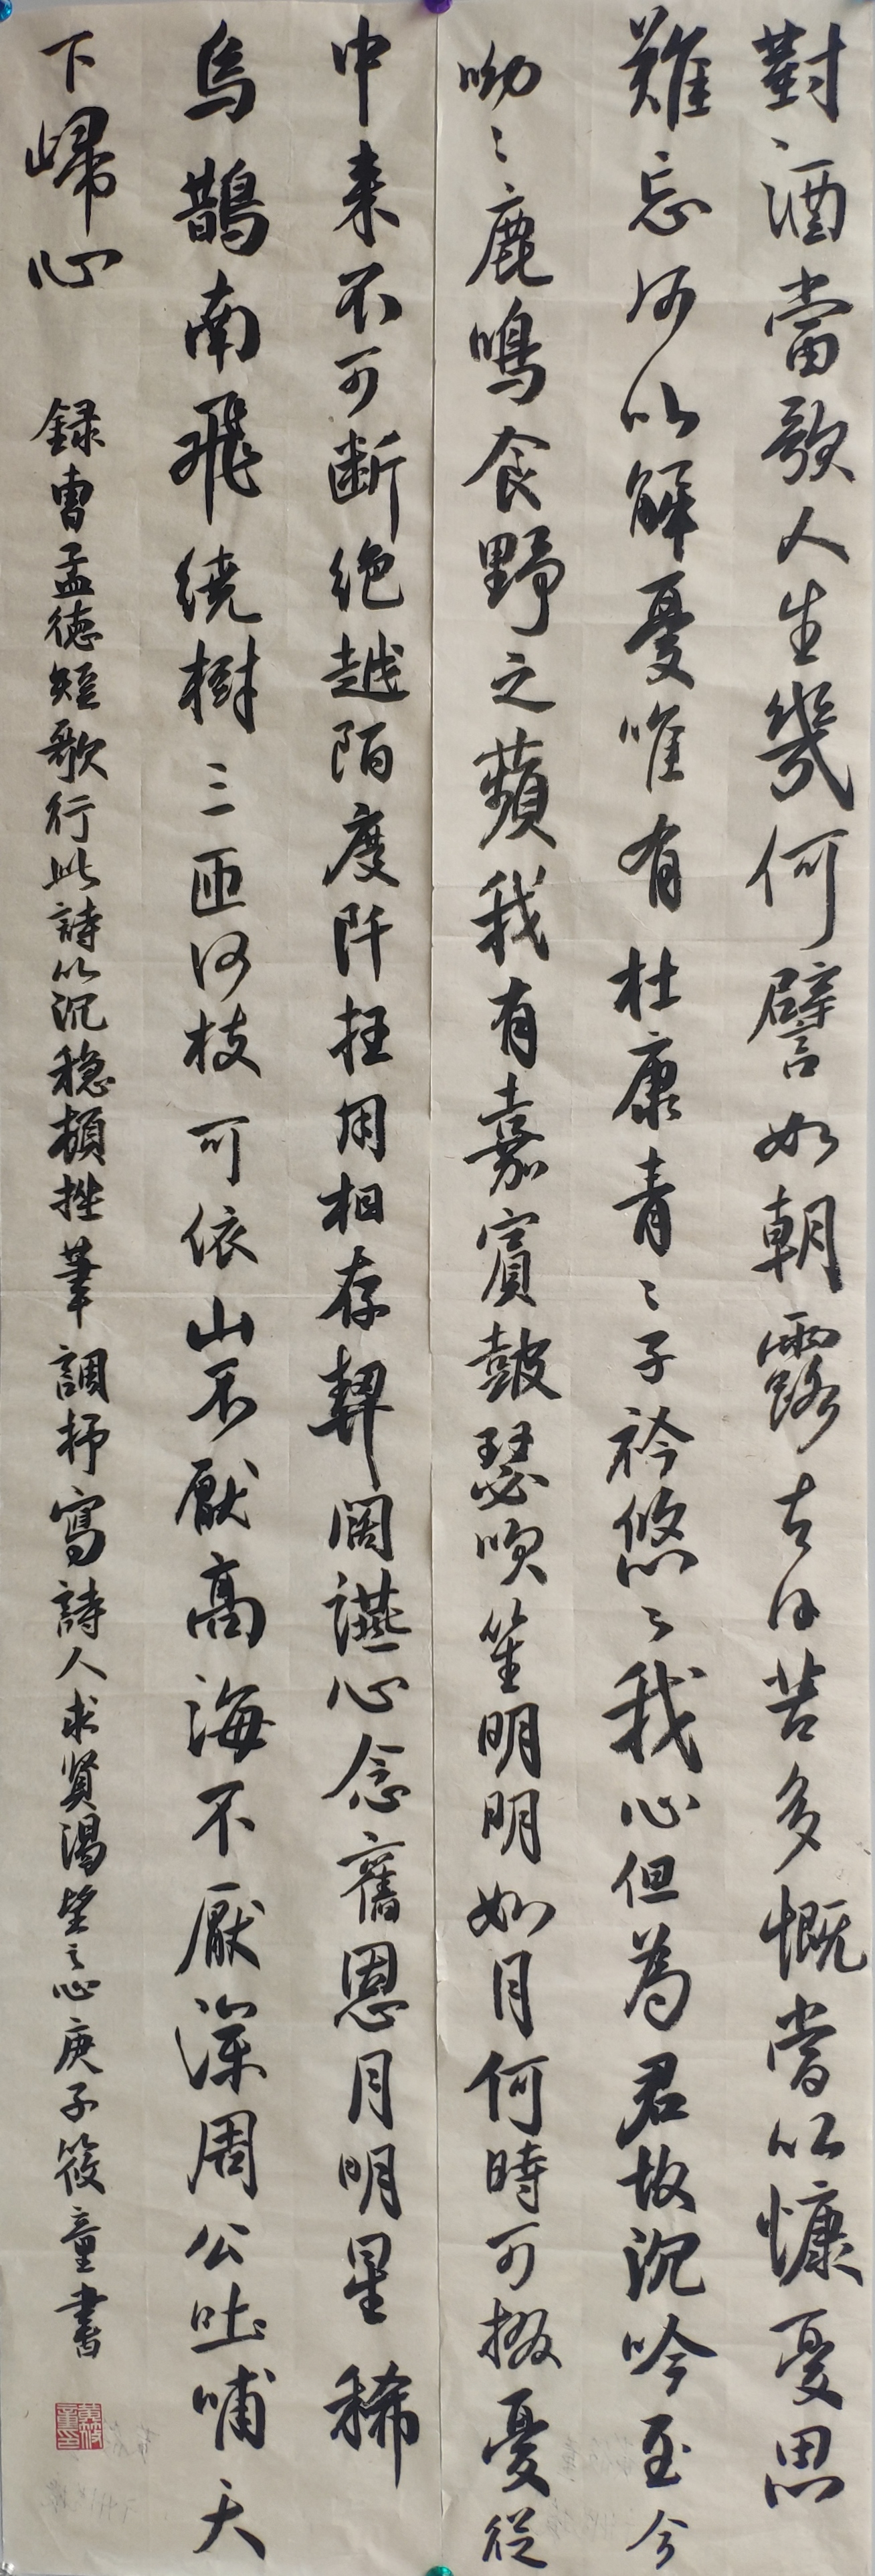 對酒當歌人生幾何譬如朝露古日苦多慨當以慷憂思
難忘何以解憂唯有杜康青〻子衿悠〻我心但為君故沉吟至今
呦〻鹿鳴食野之蘋我有嘉賓鼓瑟吹笙明明如月何時可掇憂從
中来不可断绝越陌度阡枉用相存契阔讌心念舊恩月明星稀
烏鵲南飛繞樹三匝何枝可依山不厭高海不厭深周公吐哺天
下歸心
録曹孟德短歌行此詩以沉稳頓挫筆調抒寫詩人求賢渴望之心庚子筱童書
黄筱童印